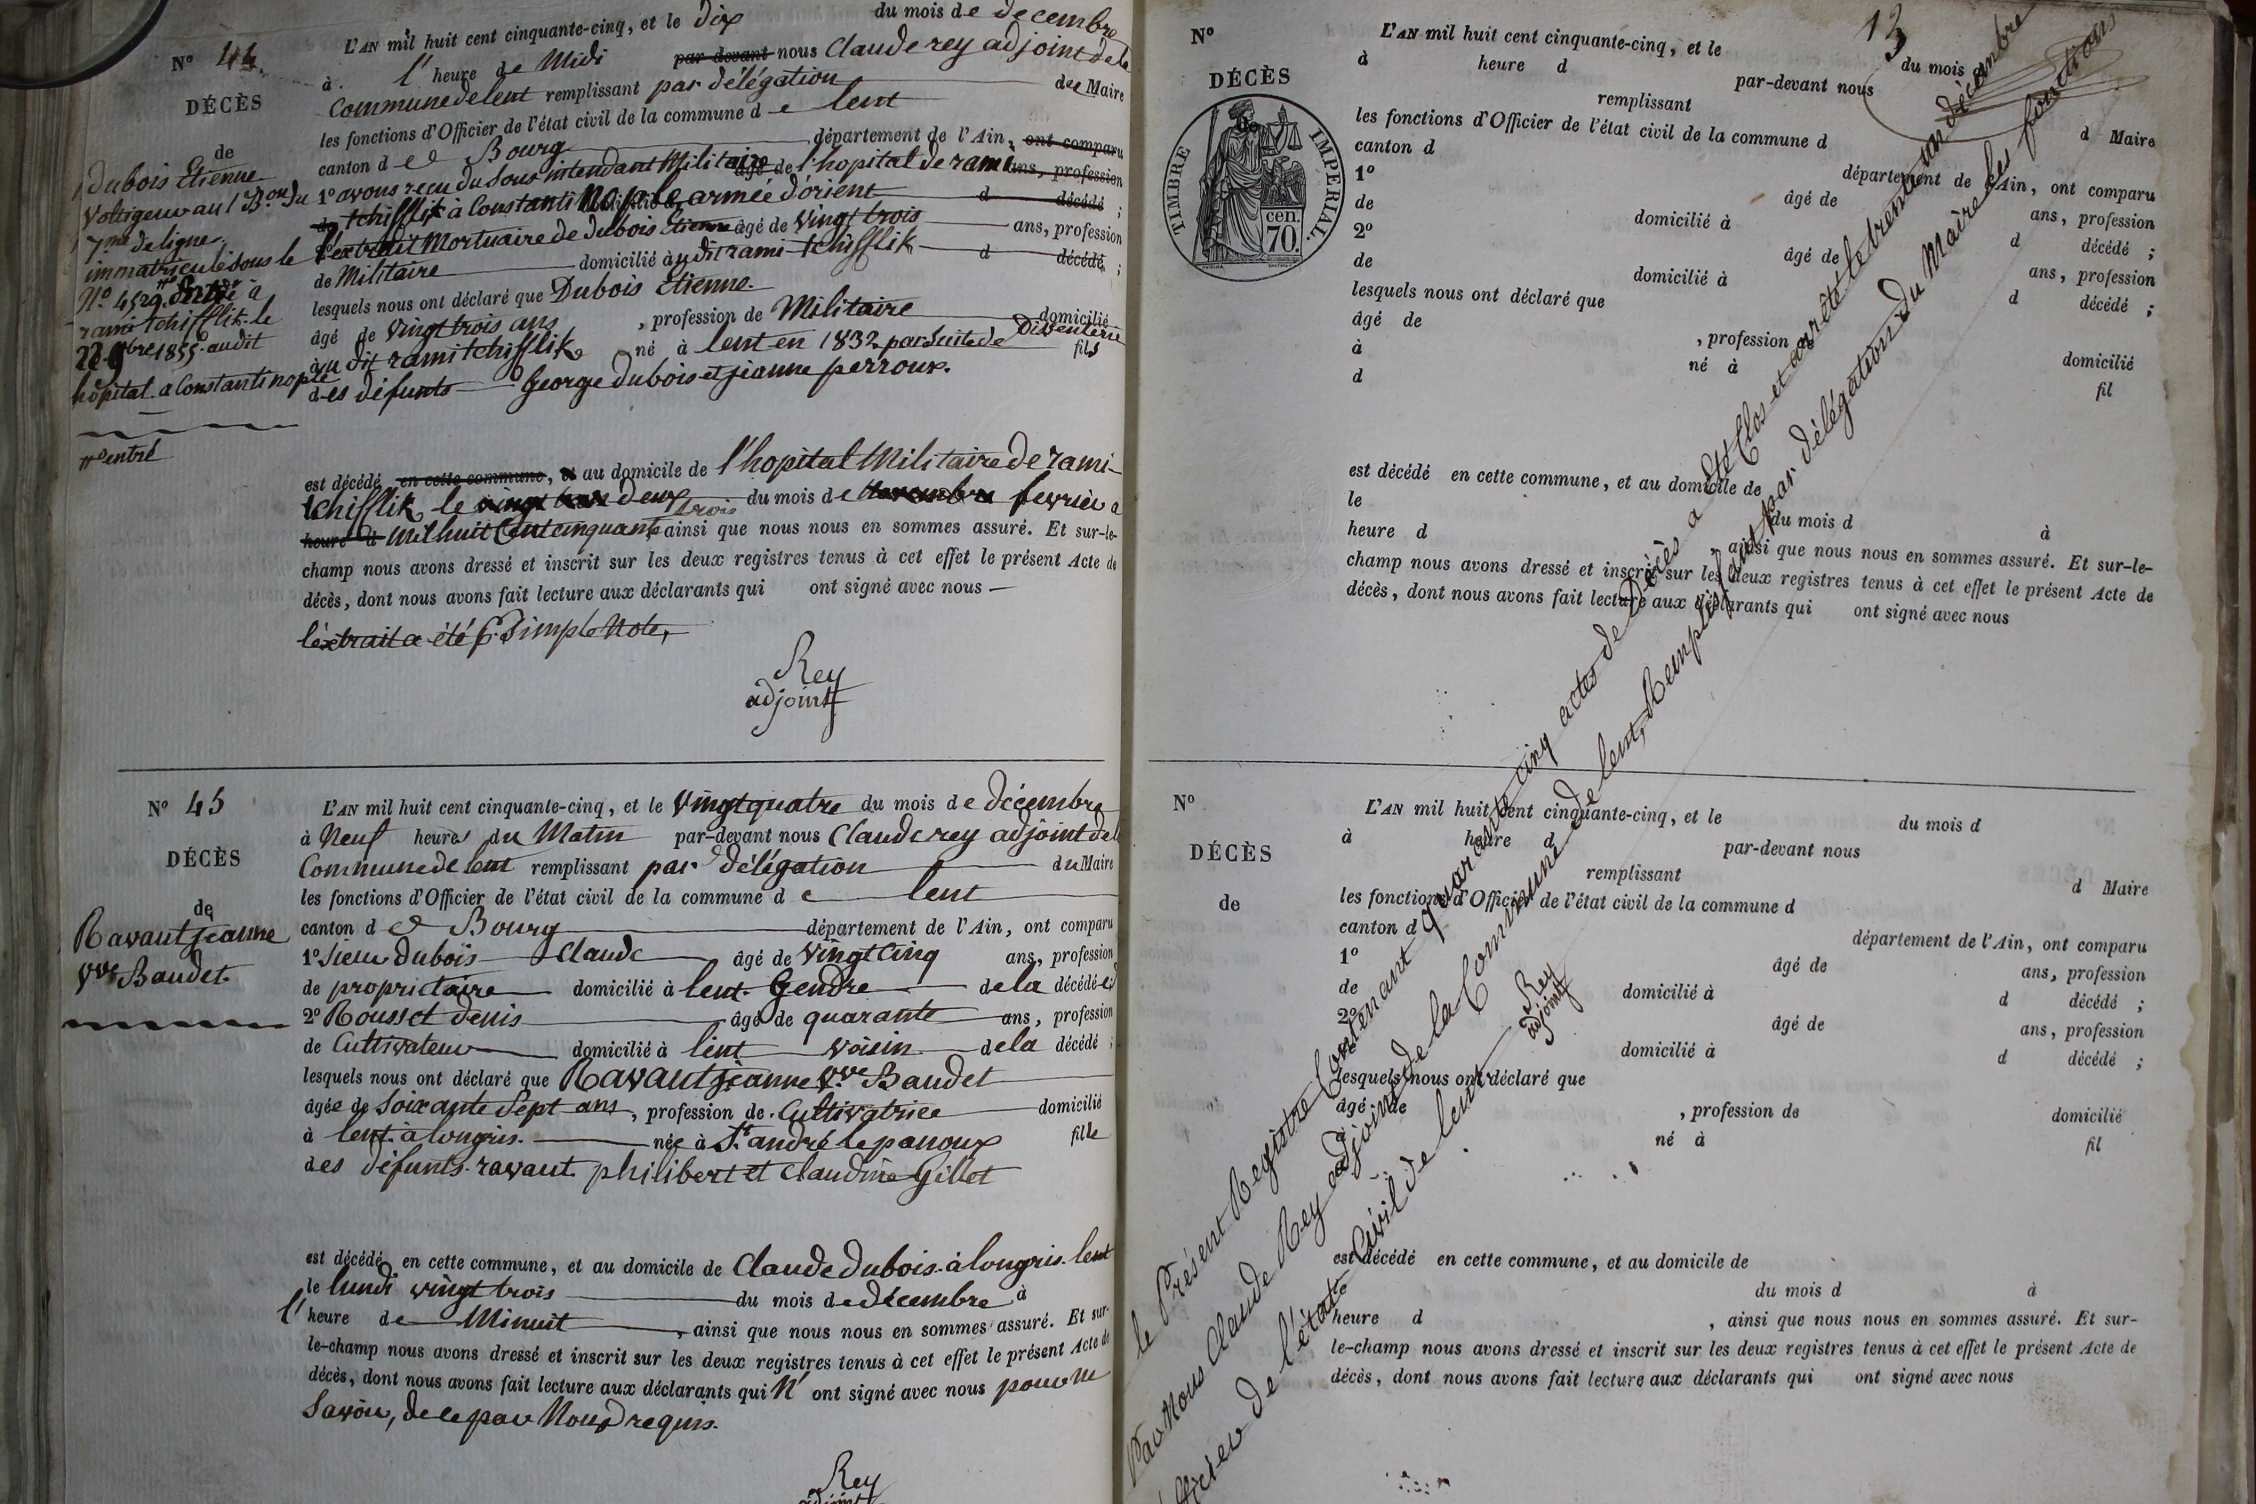 Nº 44.
DÉCÈS
de
Dubois Etienne
Voltigeur au 1er B.on du
7me de ligne.
immatriculé sous le
Nº 4529. Entré à
rami tchifflik le
22 9bre 1855 audit
hôpital a Constantinople
entré
L'AN mil huit cent cinquante-cinq, et le dix du mois de decembre
à l'heure de Midi par devant nous Claude rey adjoint de la
Commune de lent remplissant par délégation du Maire
les fonctions d'Officier de l'état civil de la commune de lent
canton de Bourg département de l'Ain, ont comparu
1º avons reçu du Sous intendant Militaire âgé de l'hopital de rami ans, profession
de tchifflik à Constantinople armée d'orient d décédé ;
l'extrait Mortuaire de Dubois Etienne âgé de vingt trois ans, profession
de Militaire domicilié audit rami-tchifflik d décédé ;
lesquels nous ont déclaré que Dubois Etienne.
âgé de vingt trois ans, profession de Militaire domicilié
au dit rami tchifflik né à lent en 1832 par Suite de Disenterie fils
des défunts George Dubois et jeanne perroux.
est décédé en cette commune, et au domicile de l'hopital Militaire de rami-
tchifflik le vingt deux trois du mois de Novembre fevrier à
heure d Mil huit Cent cinquante ainsi que nous nous en sommes assuré. Et sur-le-
champ nous avons dressé et inscrit sur les deux registres tenus à cet effet le présent Acte de
décès, dont nous avons fait lecture aux déclarants qui ont signé avec nous —
l'éxtrait a été Simple Note,
Rey
adjoint
Nº 45
DÉCÈS
de
Ravaut jeanne
Vve Baudet.
L'AN mil huit cent cinquante-cinq, et le vingt quatre du mois de décembre
à Neuf heures du Matin par-devant nous Claude rey adjoint de la
Commune de lent remplissant par délégation du Maire
les fonctions d'Officier de l'état civil de la commune de lent
canton de Bourg département de l'Ain, ont comparu
1º Sieur Dubois Claude âgé de vingt Cinq ans, profession
de propriétaire domicilié à lent. Gendre de la décédée
2º Rousset denis âgé de quarante ans, profession
de Cultivateur domicilié à lent voisin de la décédé ;
lesquels nous ont déclaré que Ravaut jeanne Vve Baudet
âgée de Soixante Sept ans, profession de Cultivatrice domicilié
à lent. à longris. née à St. andré le panoux fille
des défunts. ravaut philibert et Claudine Gillet
est décédé en cette commune, et au domicile de Claude Dubois. à longris. lent
le lundi vingt trois du mois de décembre à
l'heure de Minuit, ainsi que nous nous en sommes assuré. Et sur-
le-champ nous avons dressé et inscrit sur les deux registres tenus à cet effet le présent Acte de
décès, dont nous avons fait lecture aux déclarants qui N'ont signé avec nous pour ne
Savoir, de ce par Nous requis.
Rey
adjoint
13
Nº
DÉCÈS
de
TIMBRE IMPÉRIAL.
70 cen.
L'AN mil huit cent cinquante-cinq, et le du mois d
à heure d par-devant nous
remplissant d Maire
les fonctions d'Officier de l'état civil de la commune d
canton d département de l'Ain, ont comparu
1º âgé de ans, profession
de domicilié à d décédé ;
2º âgé de ans, profession
de domicilié à d décédé ;
lesquels nous ont déclaré que
âgé de , profession de domicilié
à né à fil
d
est décédé en cette commune, et au domicile de
le du mois d à
heure d , ainsi que nous nous en sommes assuré. Et sur-le-
champ nous avons dressé et inscrit sur les deux registres tenus à cet effet le présent Acte de
décès, dont nous avons fait lecture aux déclarants qui ont signé avec nous
Nº
DÉCÈS
de
L'AN mil huit cent cinquante-cinq, et le du mois d
à heure d par-devant nous
remplissant d Maire
les fonctions d'Officier de l'état civil de la commune d
canton d département de l'Ain, ont comparu
1º âgé de ans, profession
de domicilié à d décédé ;
2º âgé de ans, profession
de domicilié à d décédé ;
lesquels nous ont déclaré que
âgé de , profession de domicilié
à né à fil
d
est décédé en cette commune, et au domicile de
le du mois d à
heure d , ainsi que nous nous en sommes assuré. Et sur-
le-champ nous avons dressé et inscrit sur les deux registres tenus à cet effet le présent Acte de
décès, dont nous avons fait lecture aux déclarants qui ont signé avec nous
le Présent Registre Contenant quarante cinq actes de Décès a été Clos et arrêté le trente un décembre
Par Nous Claude Rey adjoint de la Commune de lent, Remplissant par délégation du Maire les fonctions
d'officier de l'état Civil de lent
Rey
adjoint